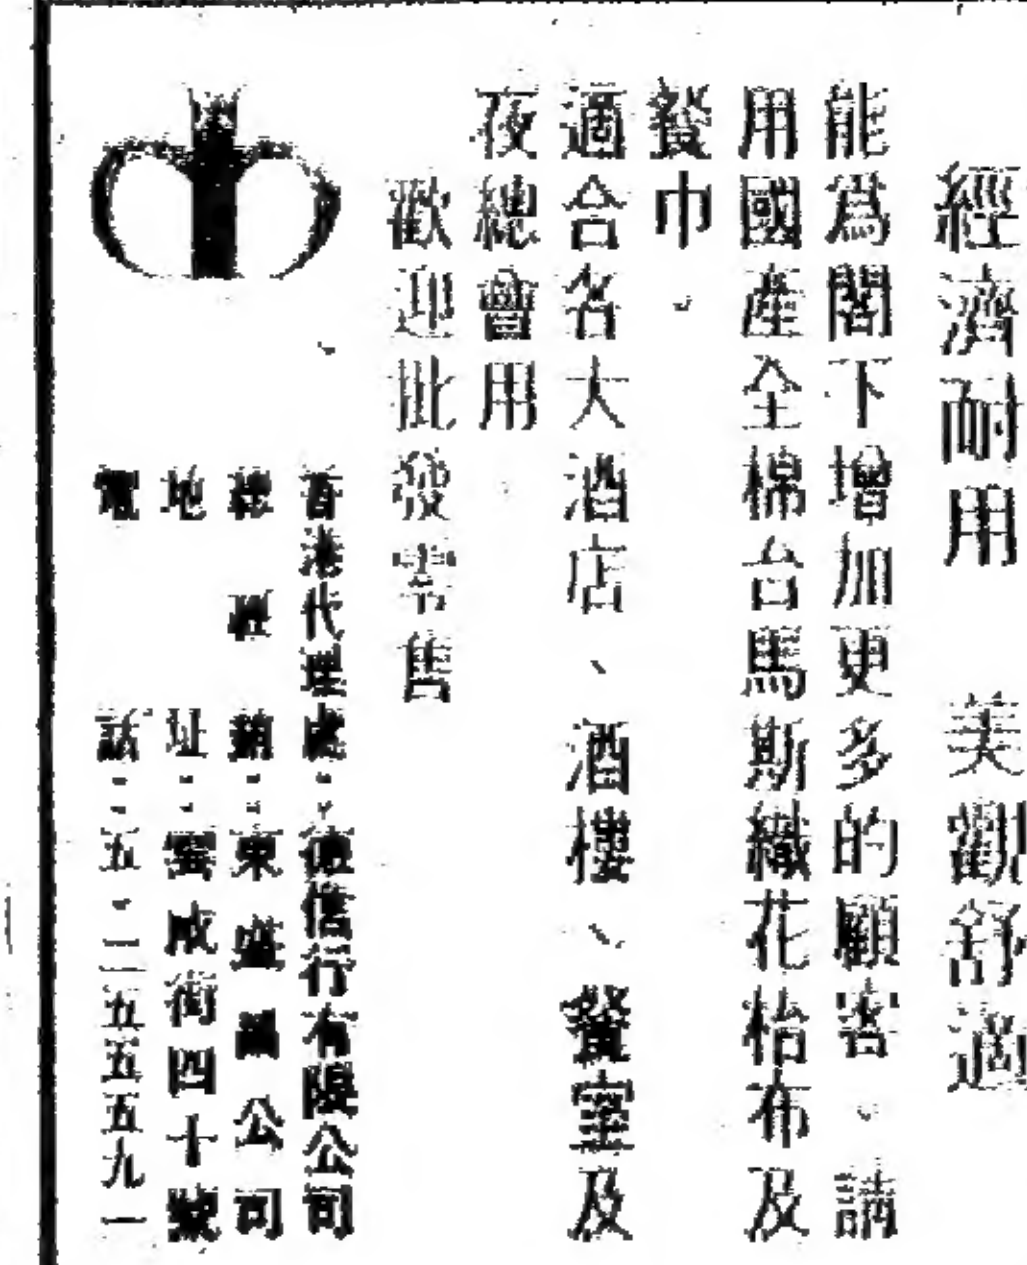 經濟耐用　美觀舒適
能爲閣下增加更多的顧客。請
用國產全棉台馬斯織花枱布及
餐巾。
適合各大酒店、酒樓、餐室及
夜總會用
歡迎批發零售
香港代理處：德信行有限公司
總經銷：東盛公司
地址：雲咸街四十號
電話：五・二五五五九一